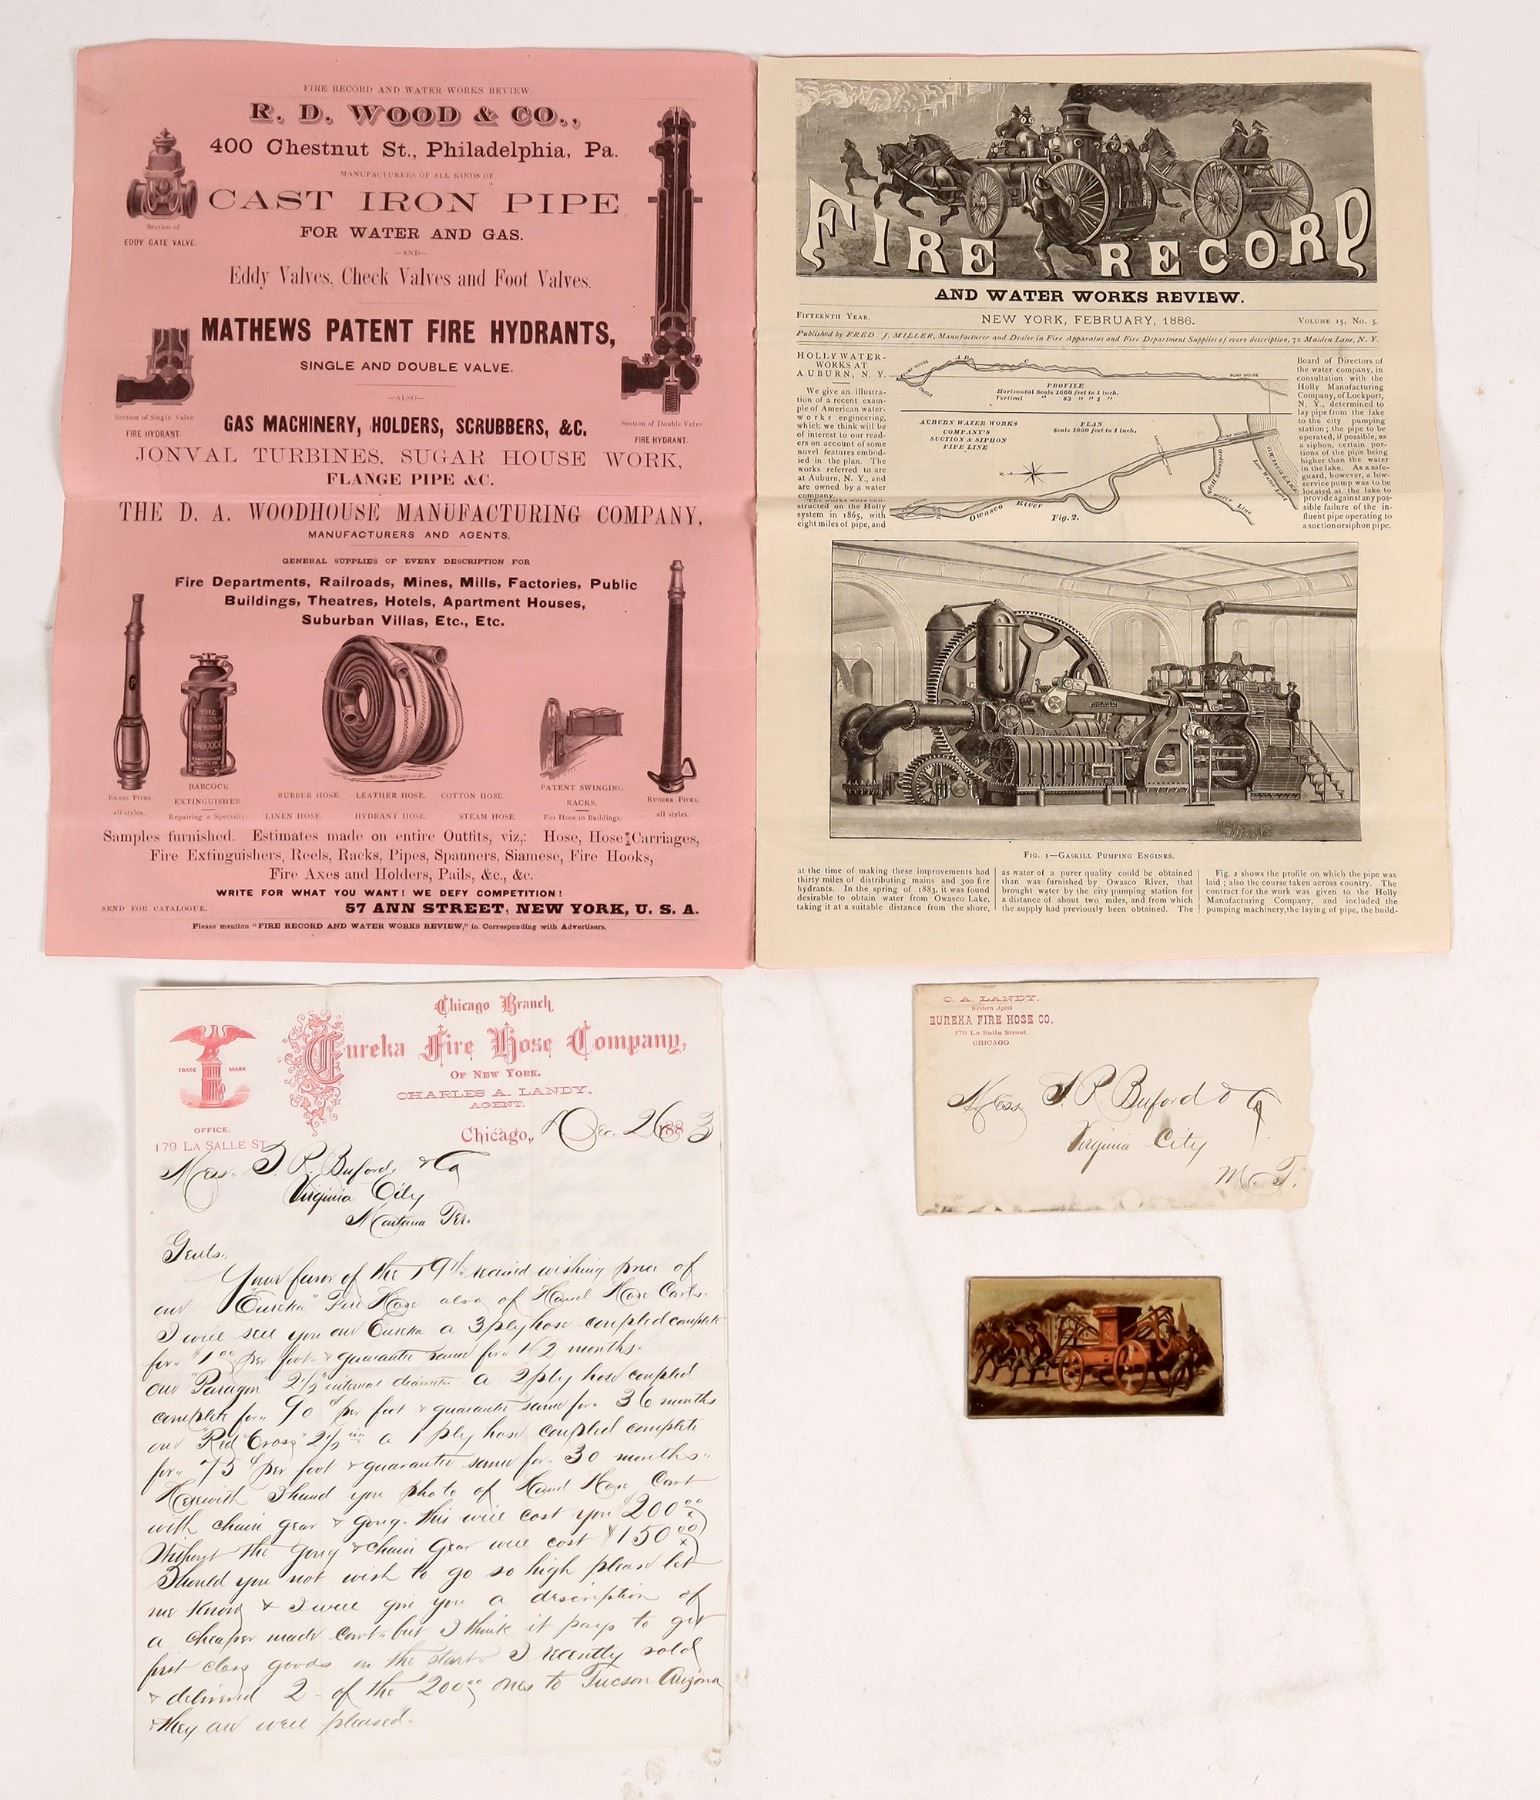 FIRE RECORD AND WATER WORKS REVIEW.
R. D. WOOD & CO.,
400 Chestnut St., Philadelphia, Pa.
MANUFACTURERS OF ALL KINDS OF
CAST IRON PIPE
FOR WATER AND GAS.
—AND—
Eddy Valves, Check Valves and Foot Valves.
Section of
EDDY GATE VALVE.
MATHEWS PATENT FIRE HYDRANTS,
SINGLE AND DOUBLE VALVE.
—ALSO—
Section of Single Valve
FIRE HYDRANT.
Section of Double Valve
FIRE HYDRANT.
GAS MACHINERY, HOLDERS, SCRUBBERS, &C.
JONVAL TURBINES, SUGAR HOUSE WORK,
FLANGE PIPE &C.
THE D. A. WOODHOUSE MANUFACTURING COMPANY,
MANUFACTURERS AND AGENTS.
GENERAL SUPPLIES OF EVERY DESCRIPTION FOR
Fire Departments, Railroads, Mines, Mills, Factories, Public
Buildings, Theatres, Hotels, Apartment Houses,
Suburban Villas, Etc., Etc.
THE
IMPROVED
BABCOCK
BRASS PIPES,
all styles.
BABCOCK
EXTINGUISHER.
Repairing a Specialty
RUBBER HOSE. LEATHER HOSE. COTTON HOSE.
LINEN HOSE. HYDRANT HOSE. STEAM HOSE.
PATENT SWINGING
RACKS.
For Hose in Buildings.
RUBBER PIPES,
all styles.
Samples furnished. Estimates made on entire Outfits, viz,: Hose, Hose Carriages,
Fire Extinguishers, Reels, Racks, Pipes, Spanners, Siamese, Fire Hooks,
Fire Axes and Holders, Pails, &c., &c.
WRITE FOR WHAT YOU WANT! WE DEFY COMPETITION!
SEND FOR CATALOGUE. 57 ANN STREET, NEW YORK, U. S. A.
Please mention "FIRE RECORD AND WATER WORKS REVIEW," in Corresponding with Advertisers.
FIRE RECORD
AND WATER WORKS REVIEW.
FIFTEENTH YEAR. NEW YORK, FEBRUARY, 1886. VOLUME 15, NO. 5.
Published by FRED J. MILLER, Manufacturer and Dealer in Fire Apparatus and Fire Department Supplies of every description, 72 Maiden Lane, N. Y.
HOLLY WATER-
WORKS AT
AUBURN, N. Y.
We give an illustra-
tion of a recent exam-
ple of American water-
works engineering,
which we think will be
of interest to our read-
ers on account of some
novel features embod-
ied in the plan. The
works referred to are
at Auburn, N. Y., and
are owned by a water
company.
The works were con-
structed on the Holly
system in 1865, with
eight miles of pipe, and
PROFILE
Horizontal Scale 1666 feet to 1 inch.
Vertical " 83 " " 1 "
AUBURN WATER WORKS
COMPANY'S
SUCTION & SIPHON
PIPE LINE
PLAN
Scale 1666 feet to 1 inch.
Owasco River
Fig. 2.
Board of Directors of
the water company, in
consultation with the
Holly Manufacturing
Company, of Lockport,
N. Y., determined to
lay pipe from the lake
to the city pumping
station; the pipe to be
operated, if possible, as
a siphon, certain por-
tions of the pipe being
higher than the water
in the lake. As a safe-
guard, however, a low-
service pump was to be
located at the lake to
provide against any pos-
sible failure of the in-
fluent pipe operating to
a suction or siphon pipe.
FIG. 1—GASKILL PUMPING ENGINES.
at the time of making these improvements had
thirty miles of distributing mains and 300 fire
hydrants. In the spring of 1883, it was found
desirable to obtain water from Owasco Lake,
taking it at a suitable distance from the shore,
as water of a purer quality could be obtained
than was furnished by Owasco River, that
brought water by the city pumping station for
a distance of about two miles, and from which
the supply had previously been obtained. The
Fig. 2 shows the profile on which the pipe was
laid; also the course taken across country. The
contract for the work was given to the Holly
Manufacturing Company, and included the
pumping machinery, the laying of pipe, the build-
Chicago Branch
Eureka Fire Hose Company,
OF NEW YORK.
CHARLES A. LANDY,
AGENT.
TRADE MARK
OFFICE.
179 LA SALLE ST.
Chicago, Dec. 26 1883
Mess. S. R. Buford & Co
Virginia City
Montana Ter.
Gents.
Your favor of the 19th received wishing price of
our "Eureka" Fire Hose also of Hand Hose Carts.
I will sell you our Eureka a 3 ply hose coupled complete
for $1.00 per foot & guarantee same for 42 months.
our "Paragon" 2½" internal diameter a 2 ply hose coupled
complete for 90¢ per foot & guarantee same for 36 months
our "Red Cross" 2½ in a 1 ply hose coupled complete
for 75¢ per foot & guarantee same for 30 months.
Herewith I hand you photo of Hand Hose Cart
with chain gear & gong. this will cost you $200.00
Without the Gong & chain gear will cost $150.00
Should you not wish to go so high please let
me know & I will give you a description of
a cheaper made cart. but I think it pays to get
first class goods on the start. I recently sold
& delivered 2 of the 200.00 ones to Tucson Arizona
& they are well pleased.
C. A. LANDY,
Western Agent
EUREKA FIRE HOSE CO.
179 La Salle Street,
CHICAGO
Mess. S. R. Buford & Co
Virginia City
M. T.